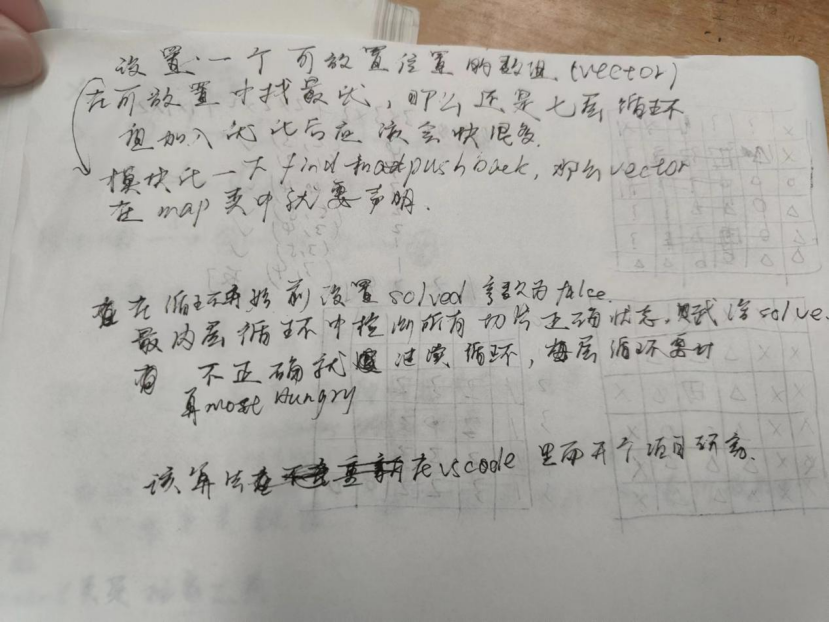 设置一个可放置位置的数组(vector)
在可放置中找最优,那么还是七层循环
但加入优化后应该会快很多.
模块化一下find most pushback,那么vector
在map类中就要声明.
在循环开始前设置solved参数为false.
最内层循环中检测所有切片正确状态.赋给solve.
有不正确就 循环,每层循环要计
算most Hungry
该算法在vscode里面开个项目研究.